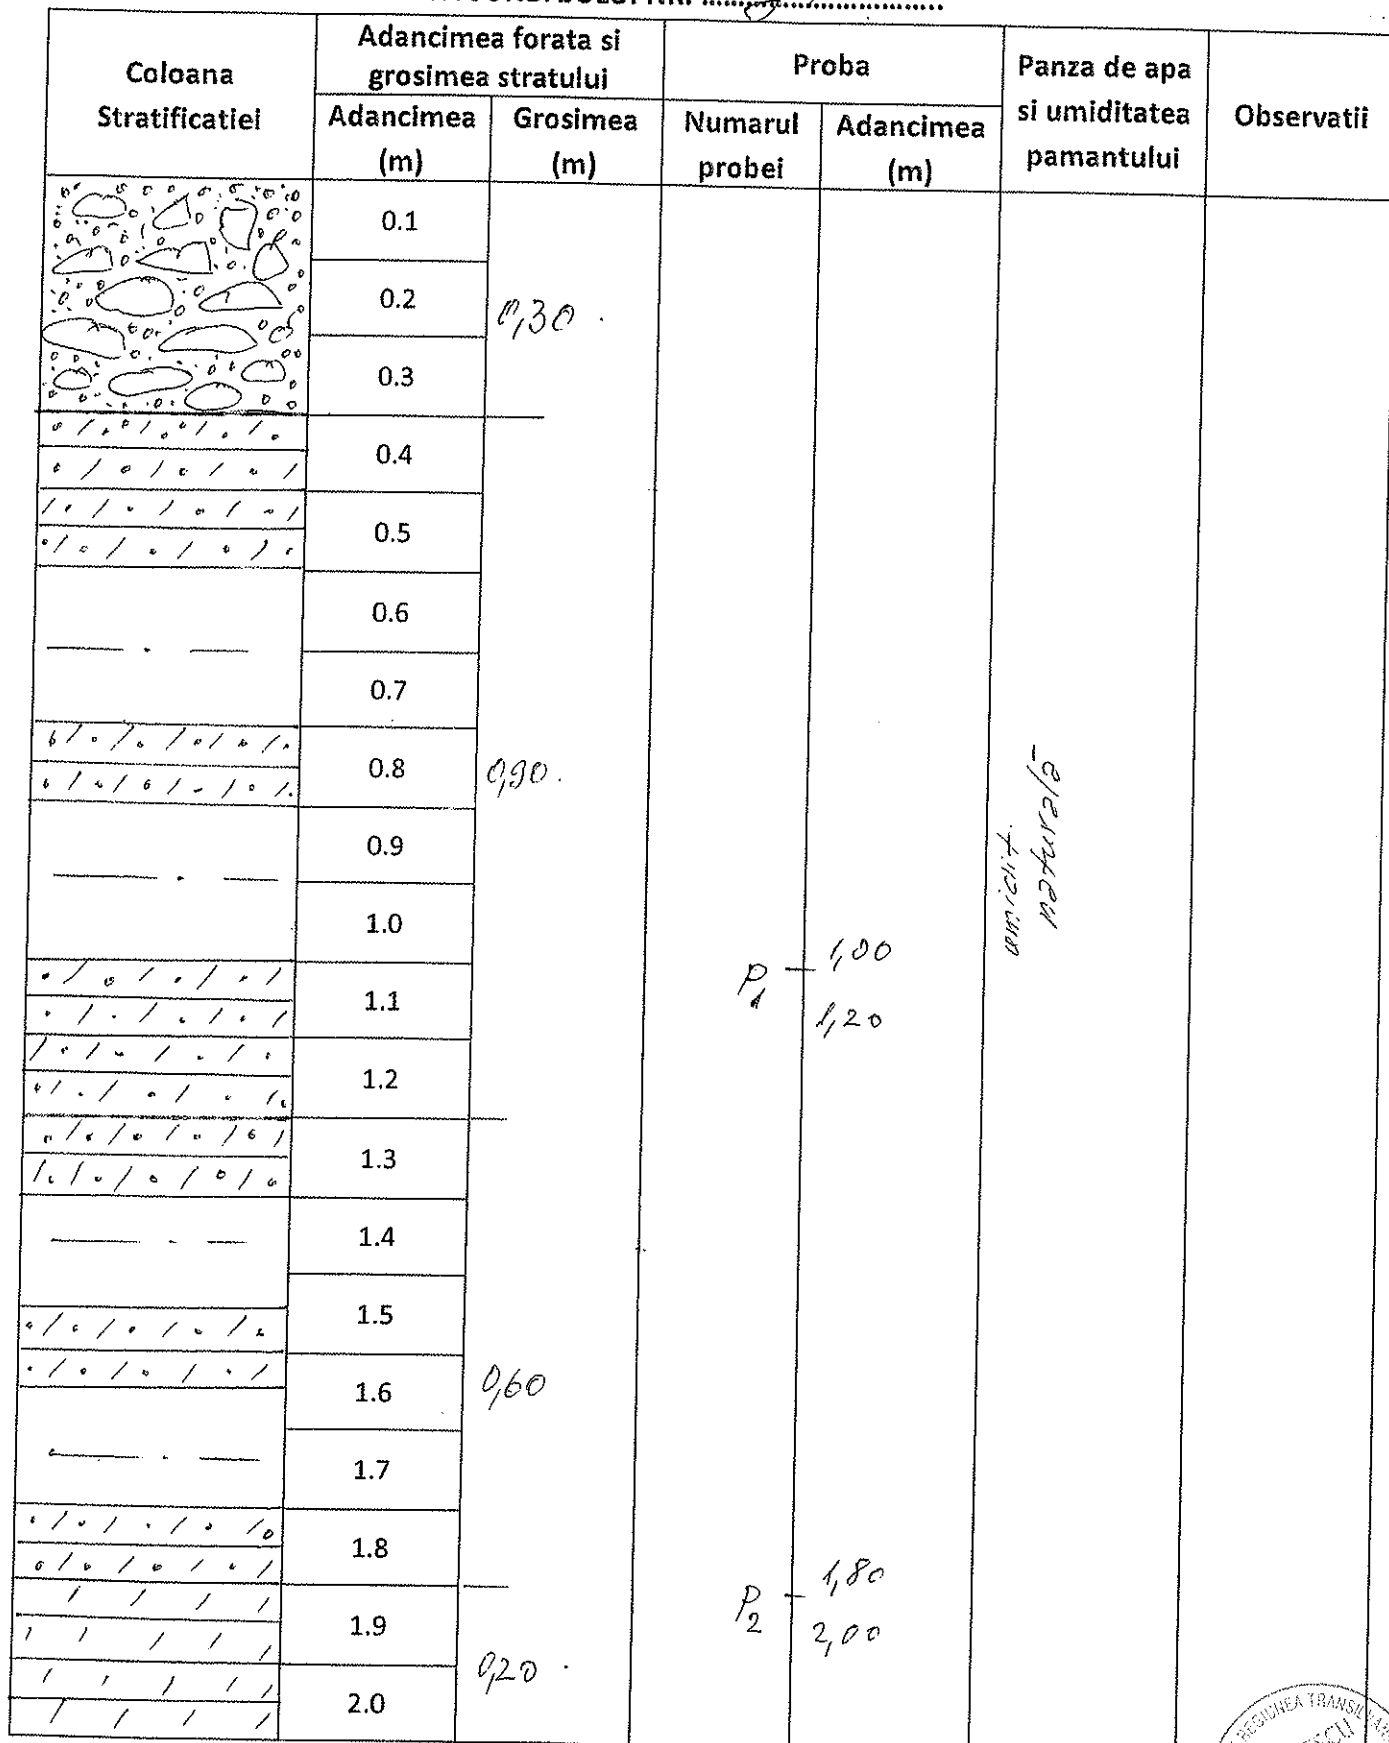 Coloana
Stratificatiei
Adancimea forata si
grosimea stratului
Proba
Panza de apa
si umiditatea
pamantului
Observatii
Adancimea
(m)
Grosimea
(m)
Numarul
probei
Adancimea
(m)
0.1
0.2
0,30
0.3
0.4
0.5
0.6
0.7
0.8
0,90
0.9
1.0
umidit.
naturală
P1
1,00
1,20
1.1
1.2
1.3
1.4
1.5
1.6
0,60
1.7
1.8
P2
1,80
2,00
1.9
0,20
2.0
REGIUNEA TRANSILVAN